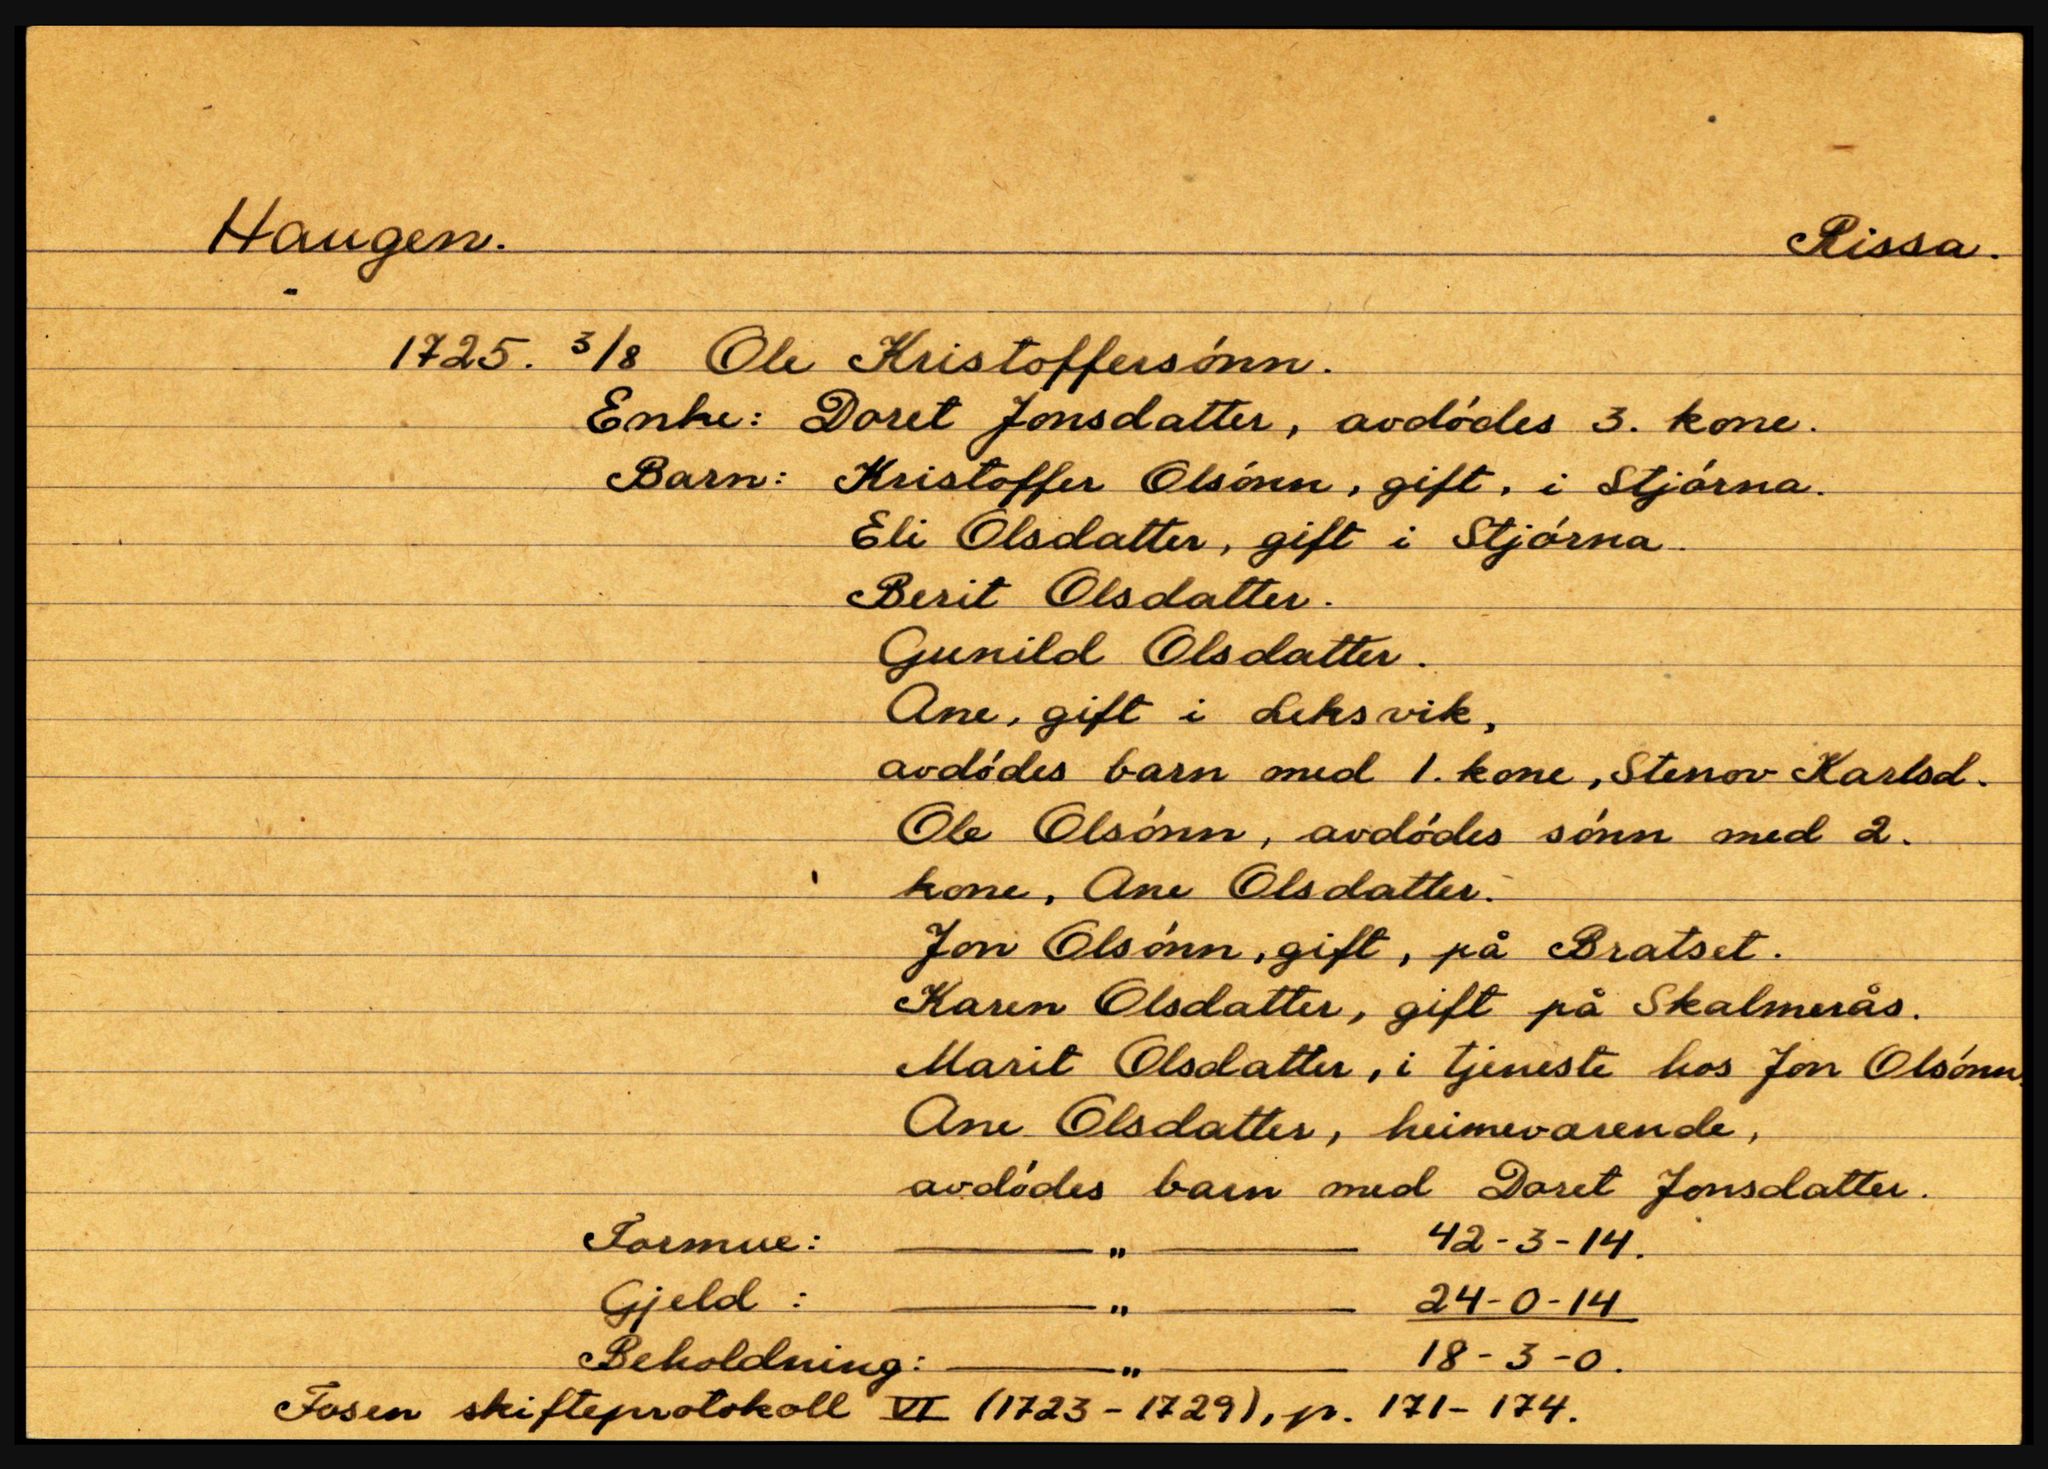 Haugen. Rissa.
1725. 3/8 Ole Kristoffersónn.
Enke: Doret Jonsdatter, avdódes 3. kone.
Barn: Kristoffer Olsónn, gift, i Stjórna.
Eli Olsdatter, gift i Stjórna.
Berit Olsdatter.
Gunild Olsdatter.
Ane, gift i Leksvik,
avdódes barn med 1. kone, Stenov Karlsd.
Ole Olsónn, avdódes sónn med 2.
kone, Ane Olsdatter.
Jon Olsónn, gift, på Bratset.
Karen Olsdatter, gift på Skalmerås.
Marit Olsdatter, i tjeneste hos Jon Olsónn.
Ane Olsdatter, heimevarende,
avdódes barn med Doret Jonsdatter.
Formue: — " — 42-3-14.
Gjeld : — " — 24-0-14
Beholdning: — " — 18-3-0.
Fosen skifteprotokoll VI (1723-1729), p. 171-174.